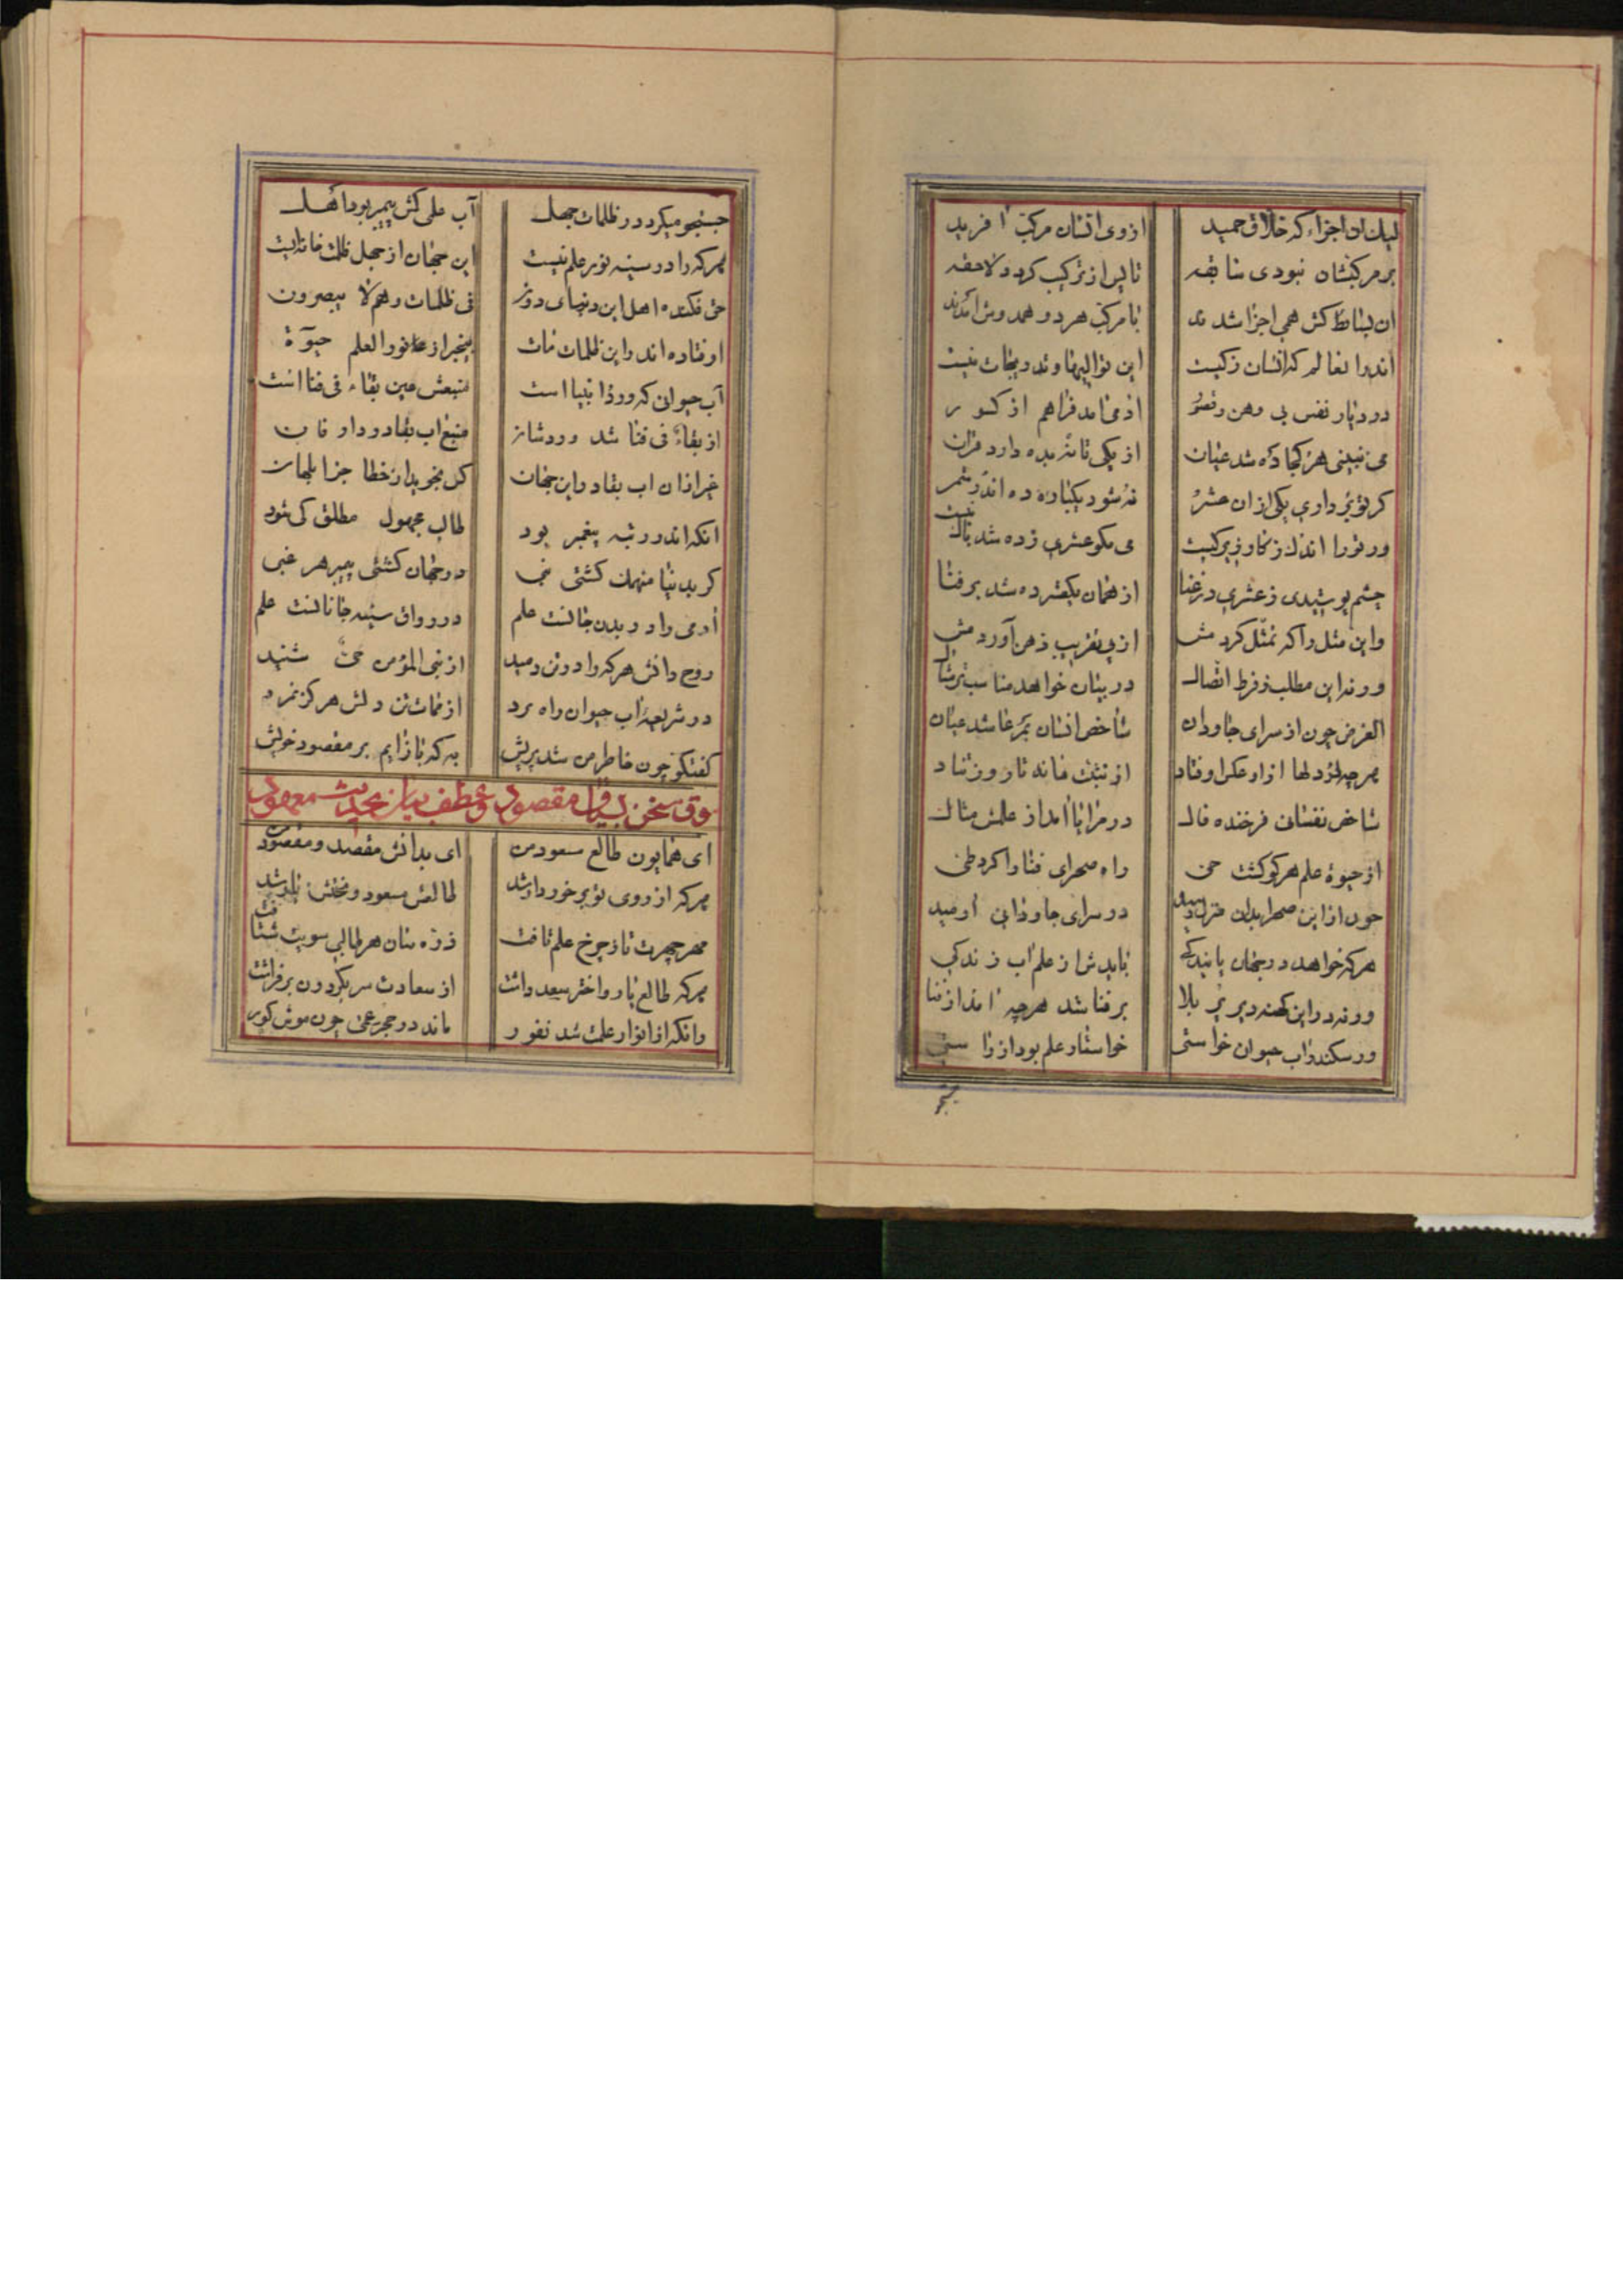 لیك ان اجزاء که خلاق حمید ازوی انسان مرکب افرید
بر مرکبشان نبودی سابقه تا پس از ترکیب کردد لاحقه
ان بسائط کش همی اجزا شدند با مرکب هر دو همدوش امدند
اندرا بعالم که انسان زکیست این توالیها و تدریجات نیست
در دیار نفس بی وهن و قصور ادمی امد فراهم از کسور
می نبینی هر کجا ده شد عیان از یکی تا نه بده دارد قران
کر تو بر داری یکی از ان عشر نه شود یکباره ده اندر شمر
ور تو را اندك زکاو زیرکیست می مکو عشری زده شد باك نیست
چشم پوشیدی زعشری در غنا از همان یکعشر ده شد بر فنا
واین مثل را که تمثل کرد مش ازپی تقریب ذهن آوردمش
ورنه این مطلب زفرط اتصال در بیان خواهد مناسب‌تر مثال
الغرض چون از سرای جاودان شاخص انسان بر ما شد عیان
هر چه در دلها ازاو عکس اوفتاد از نبی خانه تا روز تناد
شاخص نفسان فرخنده فال در مرایا امد از علمش مثال
از حیوة علم هر کو کشت حی راه صحرای فنا را کرد طی
چون از این صحرا بدان منزل رسید در سرای جاودانی ارمید
هر که خواهد در جهان پایندکی بایدش از علم اب زندکی
ورنه در این کهنه دیر پر بلا بر فنا شد هر چه امد از فنا
ور سکندر اب حیوان خواستی خواستار علم بود از راستی
جستجو میکرد در ظلمات جهل آب علمی کش پیمبر بود اهل
هر که را در سینه نور علم نیست این جهان از جهل ظلمت خانه‌ایست
حق فکنده اهل این دنیای دون فی ظلمات وهم لا یبصرون
اوفتاده اند در این ظلمات مات بیخبر از نور العلم حیوة
آب حیوانی که ورد انبیا است منبعش عین بقاء فی فنا است
از بقاء فی فنا شد وردشان منبع اب بقا در دار فان
غیر ازان اب بقا در این جهان کس نجوید از خطا جز ابلهان
انکه اندر رتبه پیغمبر بود طالب مجهول مطلق کی شود
در جهان کشتی پیمبر هر غبی
آدمی را در بدن جانست علم در رواق سینه جانانست علم
روح دانش هر که را در تن دمید از نبی المؤمن حی شنید
در شریعه اب حیوان راه برد از ممات تن دلش هرکز نمرد
کفتکو چون خاطر من شد پریش به که باز ایم بر مقصود خویش
سوق سخن بسیاق مقصود و عطف بیان بحدیث معهود
ای همایون طالع مسعود من ای بدانش مقصد و مقصود من
هر که از روی تو بر خوردار شد طالعش مسعود و بختش یار شد
مهر چهرت تا ز چرخ علم تافت ذره سان هر طالبی سویت شتافت
هر که طالع یار و اختر سعد داشت از سعادت سر بکردون بر فراشت
وانکه از انوار علمت شد نفور ماند در حجر عمی چون موش کور